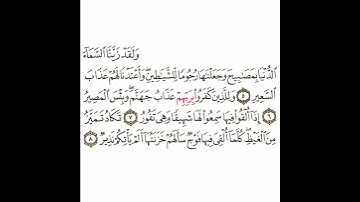 وَلَقَدْ زَيَّنَّا ٱلسَّمَآءَ
ٱلدُّنْيَا بِمَصَٰبِيحَ وَجَعَلْنَٰهَا رُجُومًا لِّلشَّيَٰطِينِ ۖ وَأَعْتَدْنَا لَهُمْ عَذَابَ
ٱلسَّعِيرِ ٥ وَلِلَّذِينَ كَفَرُوا۟ بِرَبِّهِمْ عَذَابُ جَهَنَّمَ ۖ وَبِئْسَ ٱلْمَصِيرُ
٦ إِذَآ أُلْقُوا۟ فِيهَا سَمِعُوا۟ لَهَا شَهِيقًا وَهِىَ تَفُورُ ٧ تَكَادُ تَمَيَّزُ
مِنَ ٱلْغَيْظِ ۖ كُلَّمَآ أُلْقِىَ فِيهَا فَوْجٌ سَأَلَهُمْ خَزَنَتُهَآ أَلَمْ يَأْتِكُمْ نَذِيرٌ ٨